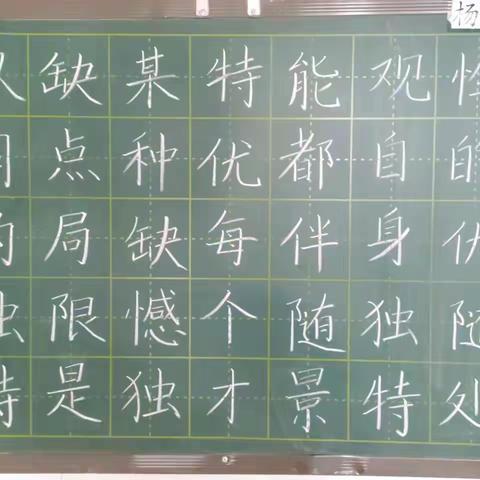 的独特
缺点局限是
某种缺憾独
特优每个才
能都伴随景
观自身独特
性的优随处
杨